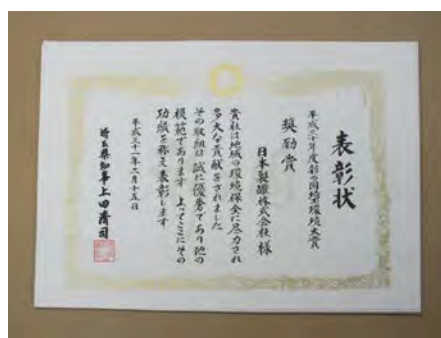 表彰状
平成三十年度彩の国埼玉環境大賞
奨励賞
日本製罐株式会社 様
貴社は地域の環境保全に尽力され
多大な貢献をされました
その取組は誠に優秀であり他の
模範であります よってここにその
功績を称え表彰します
平成三十一年二月十五日
埼玉県知事 上田清司